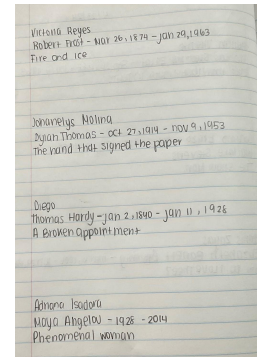 Victoria Reyes
Robert Frost - Mar 26, 1874 - Jan 29, 1963
Fire and ice
Johanelys Molina
Dylan Thomas - oct 27, 1914 - nov 9, 1953
The hand that signed the paper
Diego
Thomas Hardy - Jan 2, 1840 - Jan 11, 1928
A Broken appointment
Adriana Isadora
Maya Angelou - 1928 - 2014
Phenomenal woman